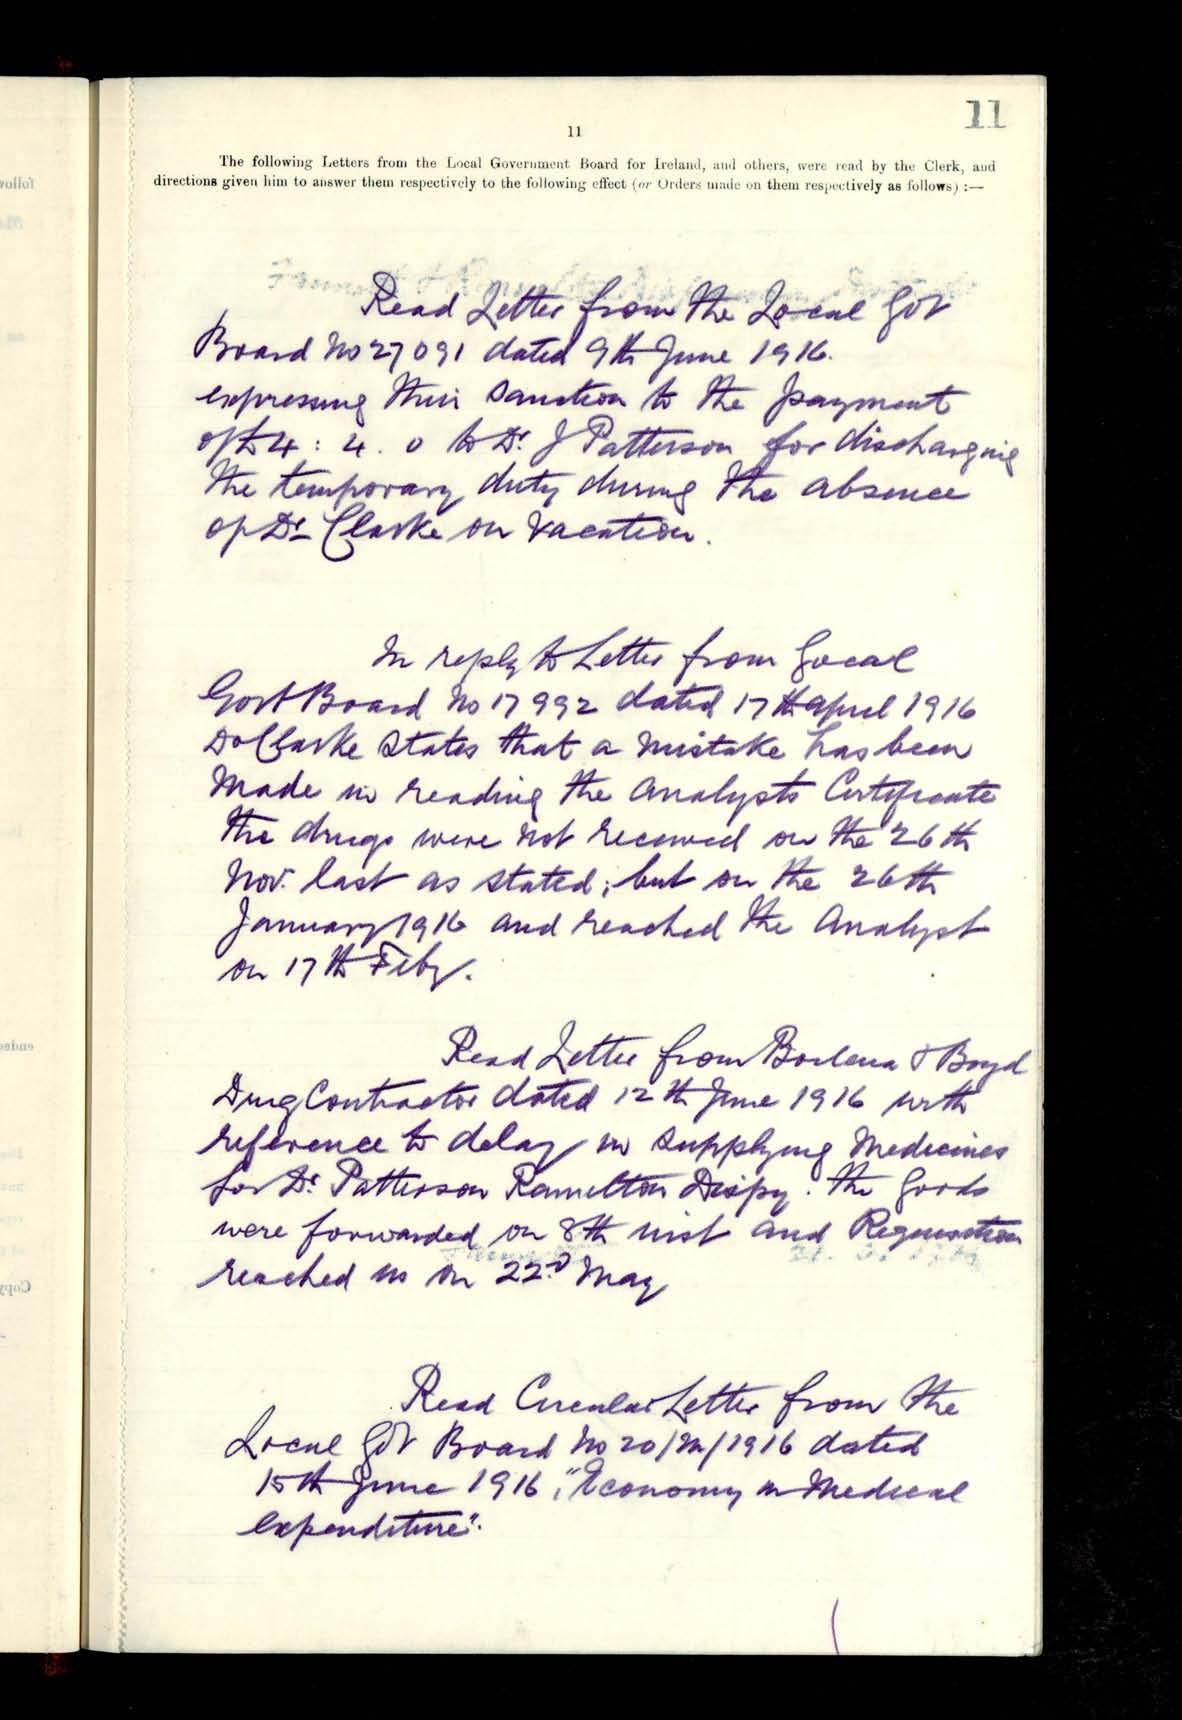 11
11
The following Letters from the Local Government Board for Ireland, and others, were read by the Clerk, and
directions given him to answer them respectively to the following effect (or Orders made on them respectively as follows) :—
Read Letter from the Local Gov
Board No 27091 dated 9th June 1916.
expressing their Sanction to the payment
of £4 : 4 . 0 to Dr. J Patterson for discharging
the temporary duty during the absence
of Dr Clarke on vacation.
In reply to Letter from Local
Govt Board No 17992 dated 17th April 1916
Dr Clarke states that a mistake has been
made in reading the Analysts Certificate
the drugs were not received on the 26th
Nov. last as stated; but on the 26th
January 1916 and reached the Analyst
on 17th Feby.
Read Letter from & Boyd
Drug Contractor dated 12th June 1916 with
reference to delay in supplying Medicines
for Dr. Patterson Ramelton Dispy. the Goods
were forwarded on 8th inst and Requisition
reached us on 22nd May
Read Circular Letter from the
Local Gov Board No 20/M/1916 dated
15th June 1916, "Economy in Medical
expenditure".